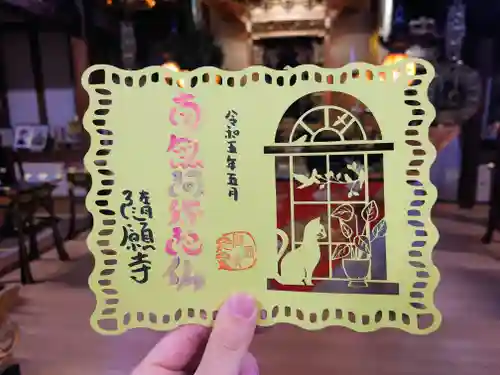 令和五年五月
南無阿弥陀仏
清願寺